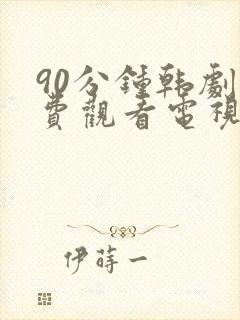 90分鍾韩劇
費觀看電視
伊蒔一